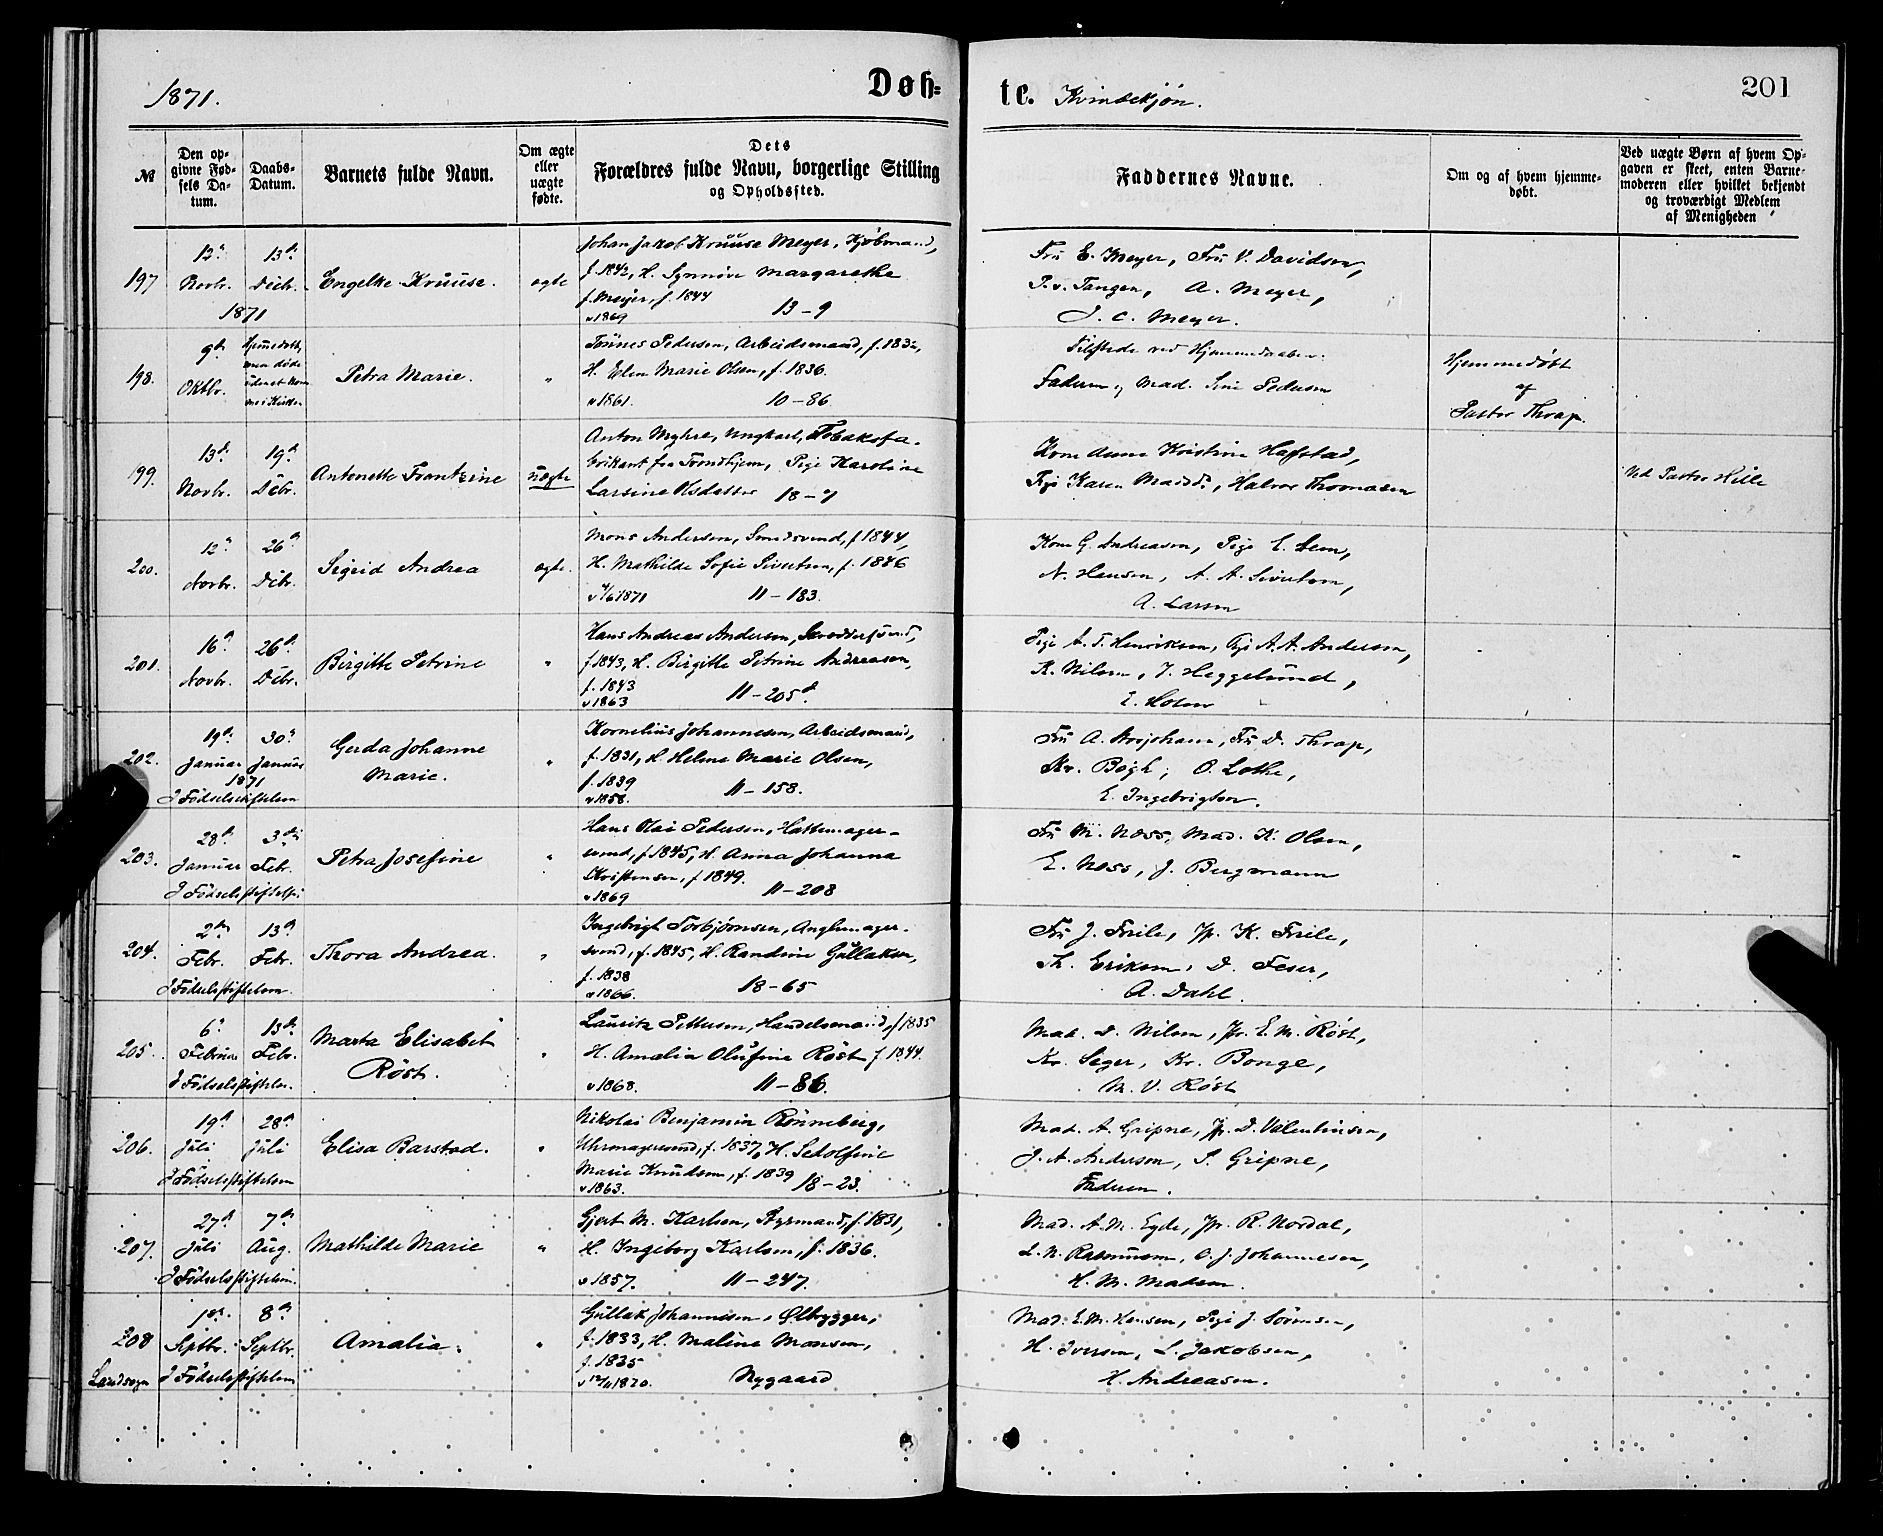 1871.
Døb=
te. Kvindekjøn.
201
№
Den op=
givne Fød=
sels Da=
tum.
Daabs=
Datum.
Barnets fulde Navn.
Om ægte
eller
uægte
fødte.
Dets
Forældres fulde Navn, borgerlige Stilling
og Opholdssted.
Faddernes Navne.
Om og af hvem hjemme=
døbt.
Ved uægte Børn af hvem Op=
gaven er skeet, enten Barne=
moderen eller hvilket bekjendt
og troværdigt Medlem
af Menigheden
197
12te Novbr.
13de Decbr.
1871
Engelke Kruuse.
ægte
Johan Jakob Kruuse Meyer, Kjøbmand,
f. 1842, H. Synnøve Margarethe
f. Meyer, f. 1844
v 1869 13–9
Fru E. Meyer, Fru V. Davidsen,
P. v. Tangen, A. Meyer,
J. C. Meyer.
198.
9de Oktbr.
Hjemmedøbt,
men døde
Petra Marie.
"
Tønnes Pedersen, Arbeidsmand, f. 1832,
H. Elen Marie Olsen, f. 1836.
v 1861. 10–86
Tilstede ved Hjemmedaaben:
Faderen, Mad. Sine Pedersen
Hjemmedøbt
af
Pastor Thrap.
199.
13de Novbr.
19de Debr.
Antonette Frantzine
uægte
Anton Myhre, Ungkarl, Tobaksfa-
brikant fra Trondhjem, Pige Karoline
Larsine Olsdatter 18–7
Kone Anne Kristine Hafstad,
Pige Karen Madsd., Halvor Thomasen
Ved Pastor Hille
200.
12te Novbr.
26de Debr.
Sigrid Andrea
ægte.
Mons Andersen, Smedsvend, f 1844,
H. Mathilde Sofie Sivertsen, f. 1846
v 4/6 1871 11–183.
Kone G. Andreasen, Pige E. Lem,
N. Hansen, A. A. Sivertsen,
A. Larsen
201.
16de Novbr.
26de Debr.
Birgitte Petrine
"
Hans Andreas Andersen, Skreddersvend,
f 1843, H. Birgitte Petrine Andreasen,
f. 1843
v 1863 11–205d.
Pige A. T. Henriksen, Pige A. A. Andersen,
K. Nilsen, J. Heggelund,
202.
19de Januar
30te Januar
1871
I Fødselsstiftelsen
Gerda Johanne
Marie.
"
Kornelius Johannesen, Arbeidsmand,
f. 1831, H. Helene Marie Olsen,
f. 1839
v 1858. 11–158.
Fru D. Thrap,
Kr. Bøgh, O. Lothe,
E. Ingebrigtsen.
203.
28de Januar
3die Febr.
I Fødselsstiftelsen
Petra Josefine
"
Hans Olai Pedersen, Hattemager-
svend, f 1845, H. Anna Johanna
Kristensen, f 1849.
v 1869 11–208
Fru M. Noss, Mad. K. Olsen,
E. Noss, J. Bergmann
204.
2den Febr.
13de Febr.
I Fødselsstiftelsen.
Thora Andrea.
"
Ingebrigt Torbjørnsen,
svend, f. 1845, H. Randine Gullaksen,
f. 1838
v 1866. 18–65
Fru J. Friele, Jfr. K. Friele,
Th. Eriksen, D. Feser,
A. Dahl.
205.
6te Februar
13de Febr.
I Fødselsstiftelsen.
Marta Elisabet
Röst.
"
Lauritz Pettersen, Handelsmand, f 1835
H. Amalia Olufine Röst f. 1844.
v 1868. 11–86.
Mad. D. Nilsen, Jfr. E. M. Röst,
Kr. Seger, Kr. Bonge,
M. V. Röst
206.
19de Juli
28de Juli
I Fødselsstiftelsen
Elisa Barstad.
"
Nikolai Benjamin Rønneberg,
Uhrmagersvend, f. 1837, H. Setolfine
Marie Knudsen, f. 1839
v 1863. 18–23.
Mad. A. Gripne, Jfr. D. Valentinsen,
J. A. Andersen, S. Gripne,
Faderen.
207.
27de Juli
7de Aug.
I Fødselsstiftelsen.
Mathilde Marie
"
Gjert M. Karlsen, Styrmand, f. 1831,
H. Ingeborg Karlsen, f. 1836.
v 1857. 11–247.
Mad. A. M. Eyde, Jfr. R. Nordal,
L. N. Rasmussen, O. J. Johannesen,
H. M. Madsen.
208
Landsogn
1ste Septbr.
8de Septbr.
I Fødselsstiftelsen
Amalia.
"
Gullak Johannesen, Ølbrygger,
f. 1833, H. Maline Monsen,
f. 1835
v 12/11 1870. Nygaard
Mad. E. M. Hansen, Pige J. Sørensen,
H. Iversen, L. Jakobsen,
H. Andreasen.